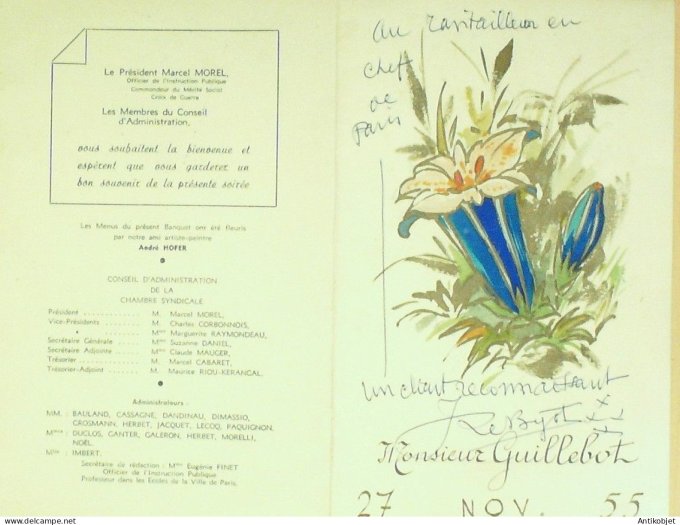 Le Président Marcel MOREL,
Officier de l'Instruction Publique
Commandeur du Mérite Social
Croix de Guerre
Les Membres du Conseil
d'Administration,
vous souhaitent la bienvenue et
espèrent que vous garderez un
bon souvenir de la présente soirée
Les Menus du présent Banquet ont été fleuris
par notre ami artiste-peintre
André HOFER
CONSEIL D'ADMINISTRATION
DE LA
CHAMBRE SYNDICALE
Président . . . . . . . . . . M. Marcel MOREL,
Vice-Présidents . . . . . . . . . . M. Charles CORBONNOIS,
Mme Marguerite RAYMONDEAU,
Secrétaire Générale . . . . . . Mme Suzanne DANIEL,
Secrétaire Adjointe . . . . . . Mme Claude MAUGER,
Trésorier . . . . . . . . . . M. Marcel CABARET,
Trésorier-Adjoint . . . . . . M. Maurice RIOU-KERANGAL,
Administrateurs :
MM. : BAULAND, CASSAGNE, DANDINAU, DIMASSIO,
GROSMANN, HERBET, JACQUET, LECOQ, PAQUIGNON,
Mmes : DUCLOS, GANTER, GALERON, HERBET, MORELLI,
NOËL.
Mlle : IMBERT.
Secrétaire de rédaction : Mme Eugénie FINET
Officier de l'Instruction Publique
Professeur dans les Ecoles de la Ville de Paris.
au ravitailleur en
cheff
de
Paris
un client reconnaissant
Monsieur Guillebot
27 NOV. 55
www.antikobjet.com
Antikobjet